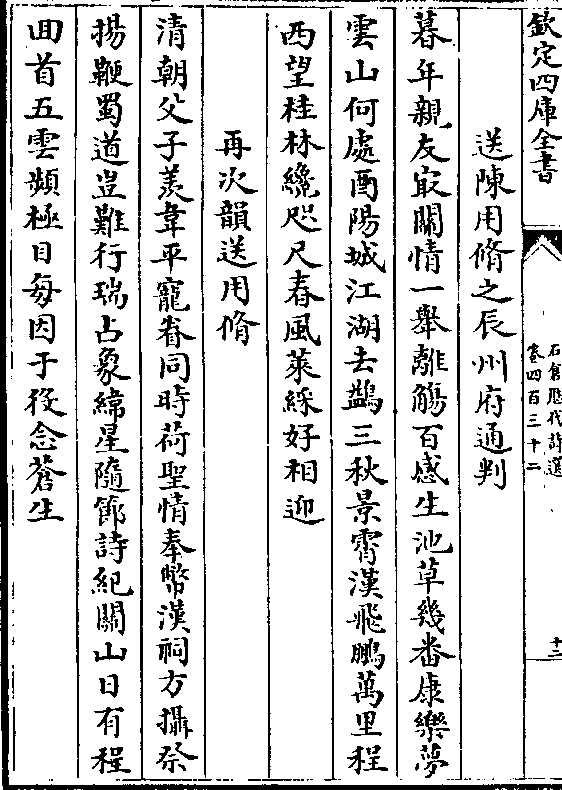 欽定四庫全書
石倉歷代詩選
卷四百三十二
十二
送陳用脩之辰州府通判
暮年親友㝡關情一舉離觴百感生池草幾番康樂夢
雲山何處酉陽城江湖去鷁三秋景霄漢飛鵬萬里程
西望桂林纔咫尺春風萊綵好相迎
再次韻送用脩
清朝父子羨韋平寵眷同時荷聖情奉幣漢祠方攝祭
揚鞭蜀道豈難行瑞占象緯星隨節詩紀關山日有程
回首五雲頻極目每因于役念蒼生